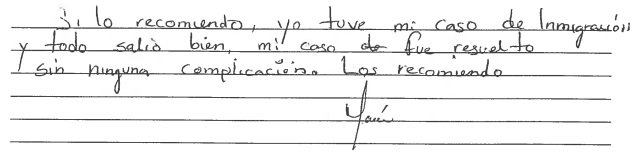 Si lo recomiendo, yo tuve mi caso de Inmigración
y todo salió bien, mi caso de fue resuelto
sin ninguna complicación. Los recomiendo